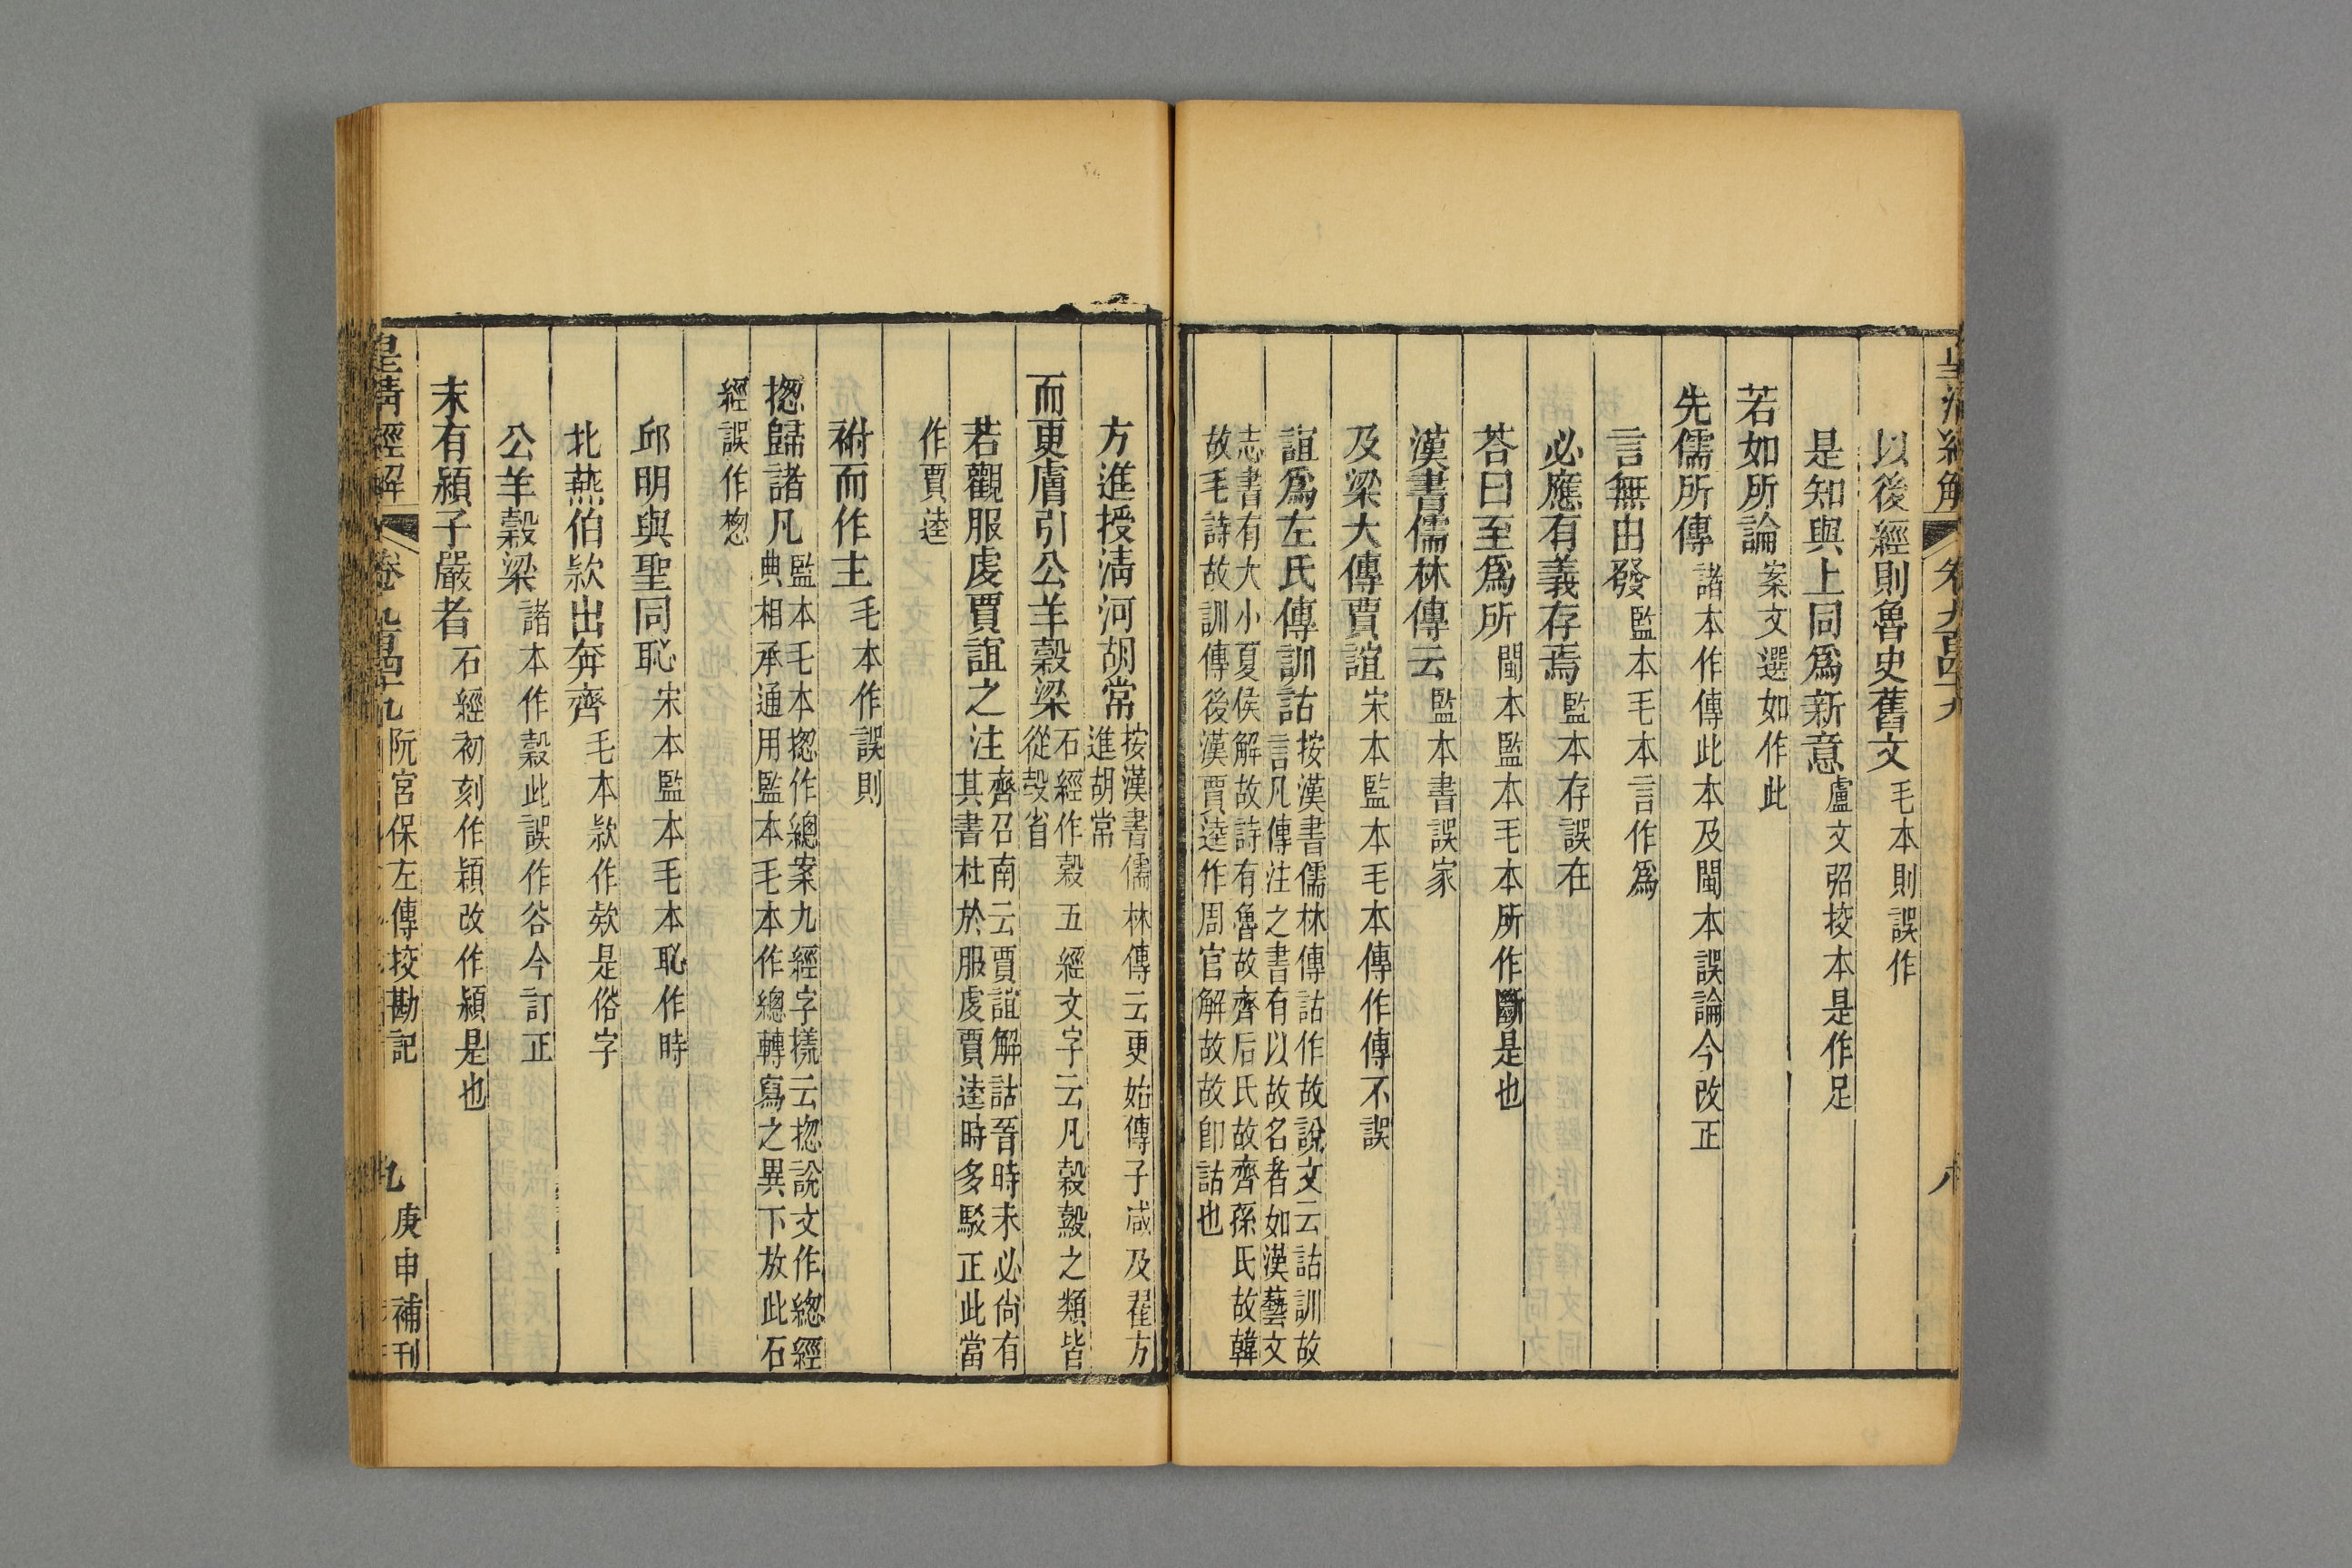 以後經則魯史舊文毛本則誤作
是知與上同爲新意盧文弨挍本是作足
若如所論案文選如作此
先儒所傳諸本作傳此本及閩本誤論今改正
言無由發監本毛本言作爲
必應有義存焉監本存誤在
荅曰至爲所閩本監本毛本所作斷是也
漢書儒林傳云監本書誤家
及梁大傳賈誼宋本監本毛本傳作傅不誤
誼爲左氏傳訓詁按漢書儒林傳詁作故說文云詁訓故
言凡傳注之書有以故名者如漢藝文
志書有大小夏侯解故詩有魯故齊后氏故齊孫氏故韓
故毛詩故訓傳後漢賈逵作周官解故故卽詁也
方進授淸河胡常按漢書儒林傳云更始傳子咸及翟方
進胡常
而更膚引公羊穀梁石經作榖五經文字云凡榖㲉之類皆
從㱿省
若觀服虔賈誼之注齊召南云賈誼解詁晉時未必尙有
其書杜於服虔賈逵時多駁正此當
作賈逵
祔而作主毛本作誤則
揔歸諸凡監本毛本揔作總案九經字㨾云揔說文作緫經
典相承通用監本毛本作總轉寫之異下放此石
經誤作惣
邱明與聖同恥宋本監本毛本恥作時
北燕伯款出奔齊毛本款作欵是俗字
公羊穀梁諸本作穀此誤作谷今訂正
末有潁子嚴者石經初刻作穎改作潁是也
皇淸經解
卷九百四十九 阮宮保左傳挍勘記
九 庚申補刊